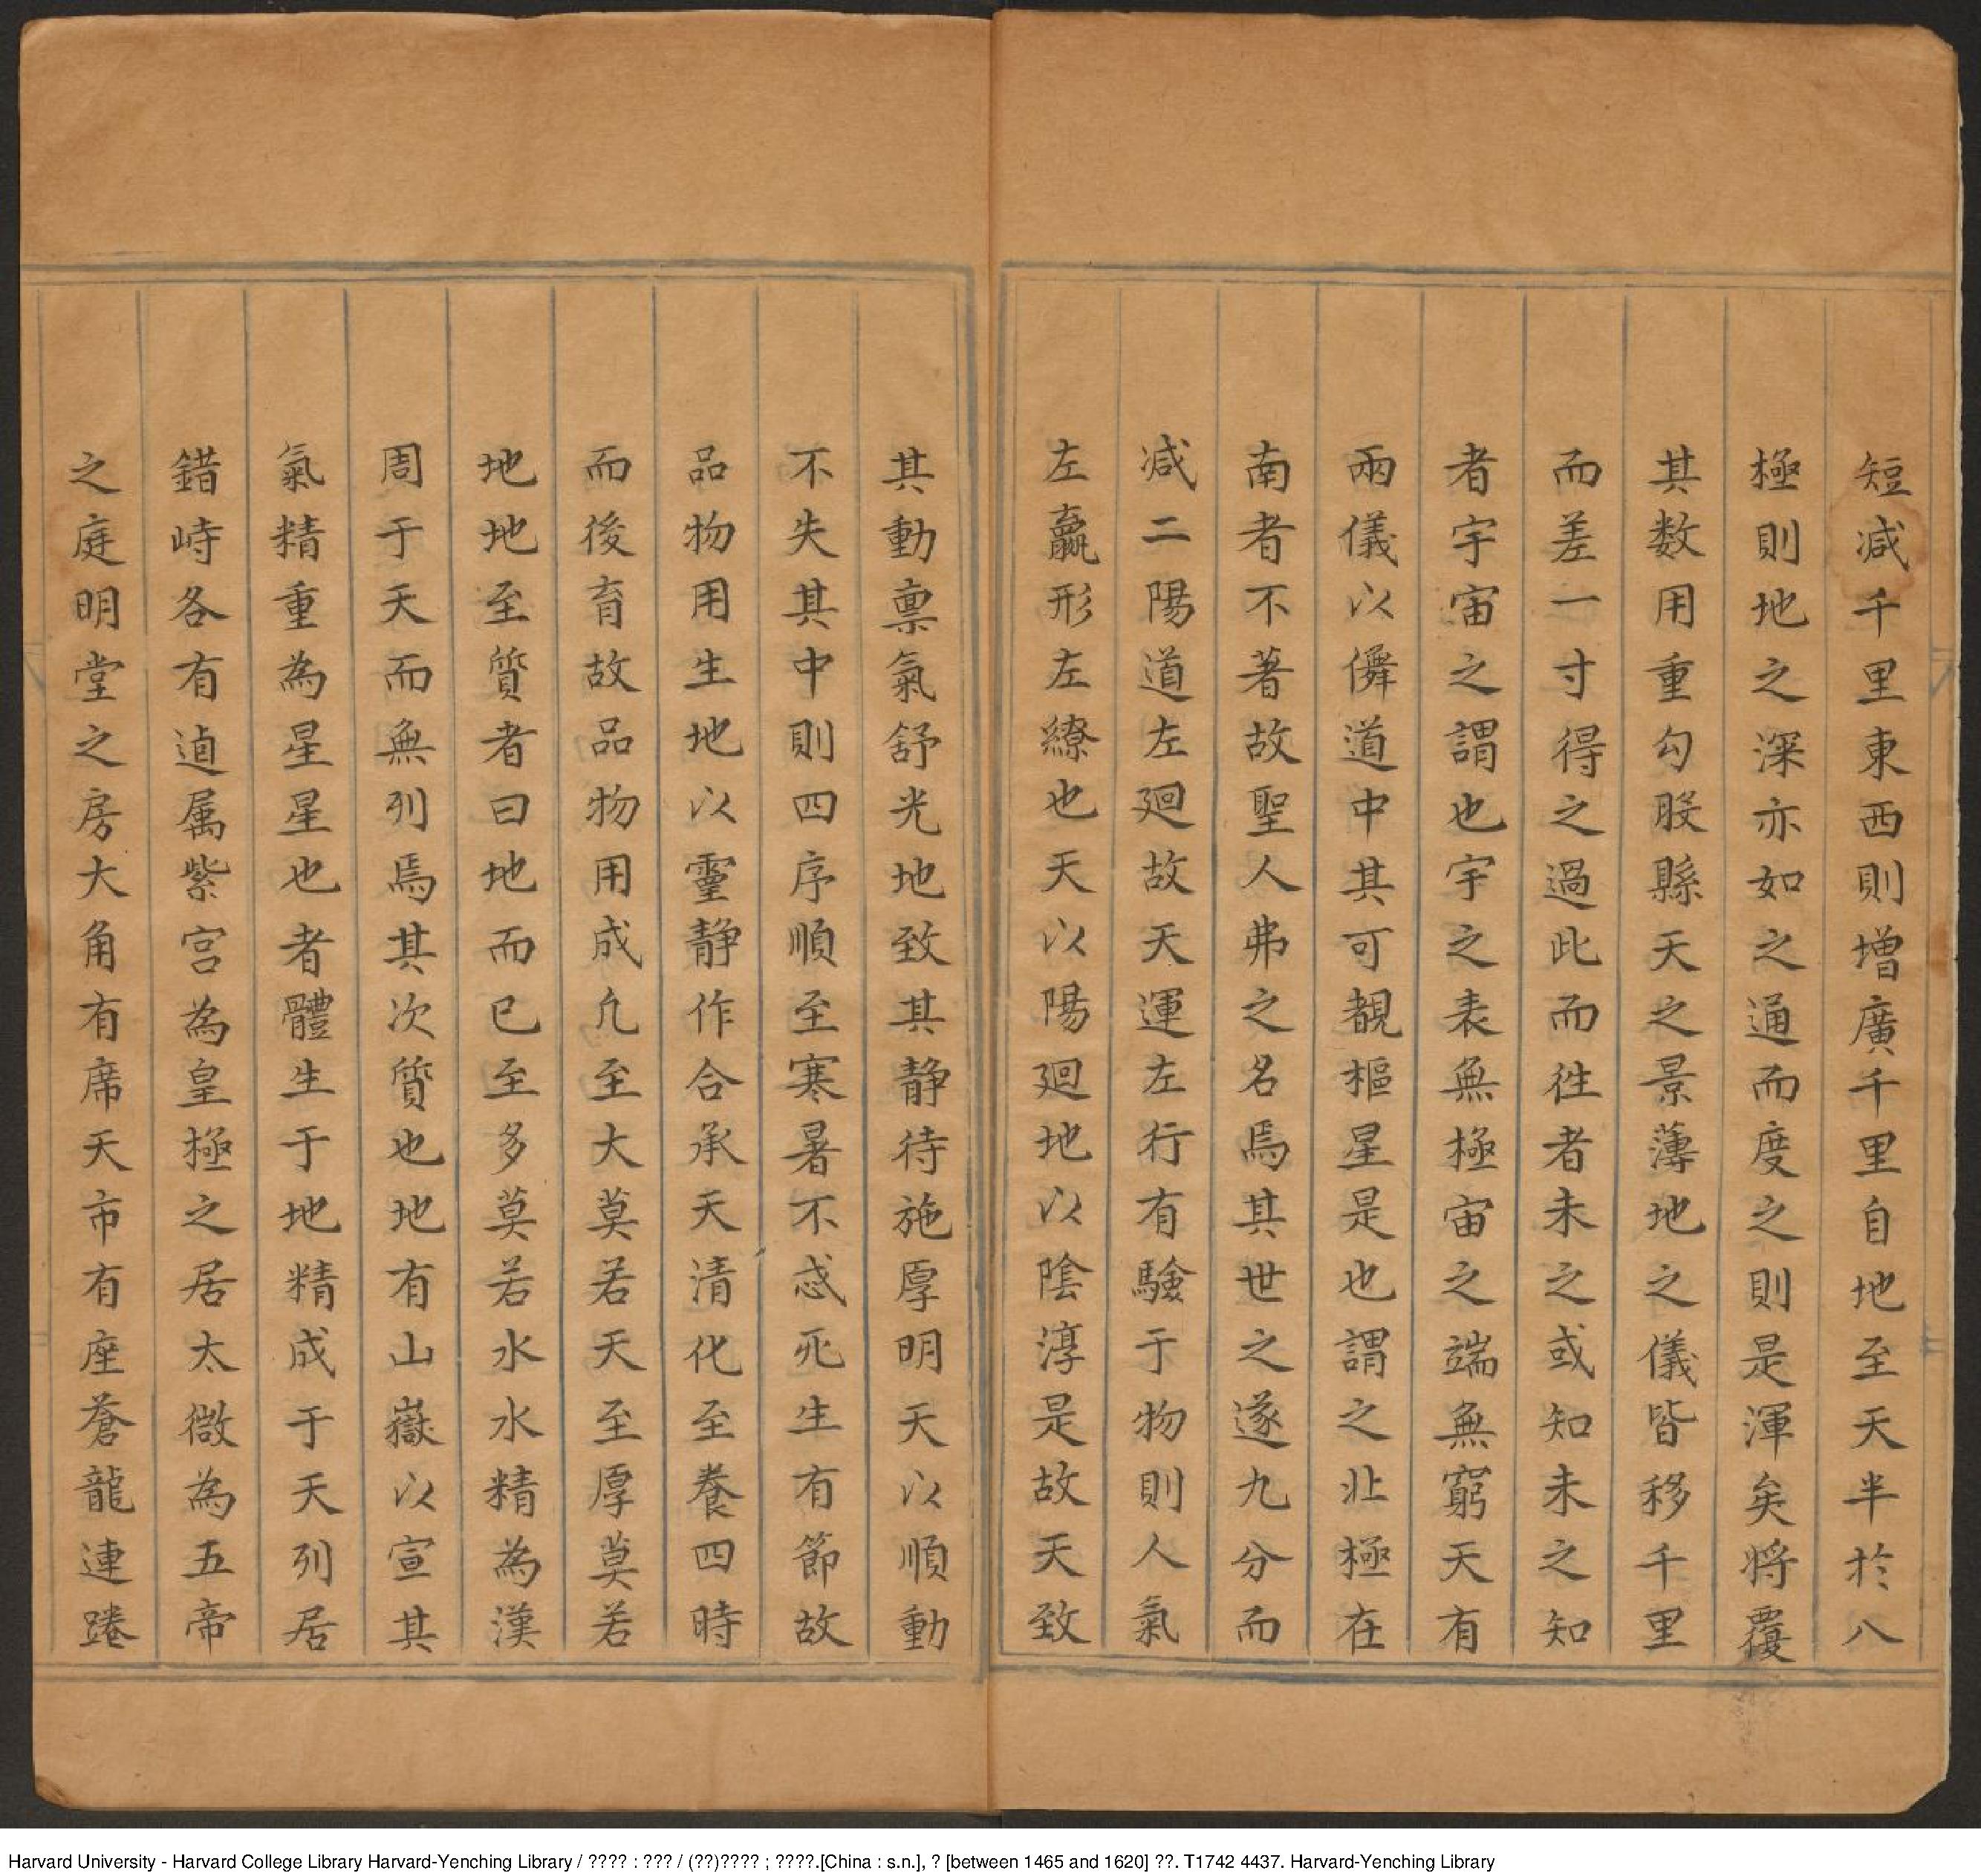 短减千里東西則增廣千里自地至天半於八
極則地之深亦如之通而度之則是渾矣將覆
其数用重勾股縣天之景薄地之儀皆移千里
而差一寸得之過此而徃者未之或知未之知
者宇宙之謂也宇之表無極宙之端無窮天有
兩儀以儛道中其可覩樞星是也謂之北極在
南者不著故聖人弗之名焉其世之遂九分而
减二陽道左廻故天運左行有驗于物則人氣
左羸形左繚也天以陽廻地以陰淳是故天致
其動禀氣舒光地致其静待施厚明天以順動
不失其中則四序順至寒暑不忒死生有節故
品物用生地以靈静作合承天清化至養四時
而後育故品物用成凢至大莫若天至厚莫若
地地至質者曰地而已至多莫若水水精為漢
周于天而無列焉其次質也地有山嶽以宣其
氣精重為星星也者體生于地精成于天列居
錯峙各有逌属紫宫為皇極之居太微為五帝
之庭明堂之房大角有席天市有座蒼龍連蜷
Harvard University - Harvard College Library Harvard-Yenching Library / ???? : ??? / (??)???? ; ????.[China : s.n.], ? [between 1465 and 1620] ??. T1742 4437. Harvard-Yenching Library